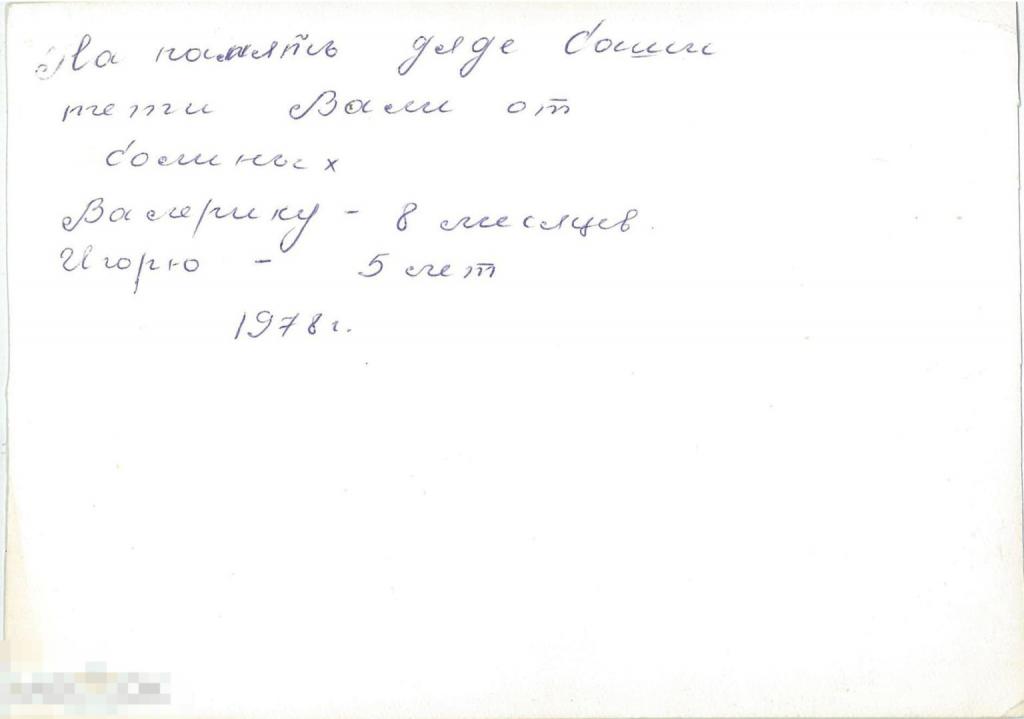 На память дяде Саши
тети Вали от
Валерику - 8 месяцев.
Игорю - 5 лет
1978 г.